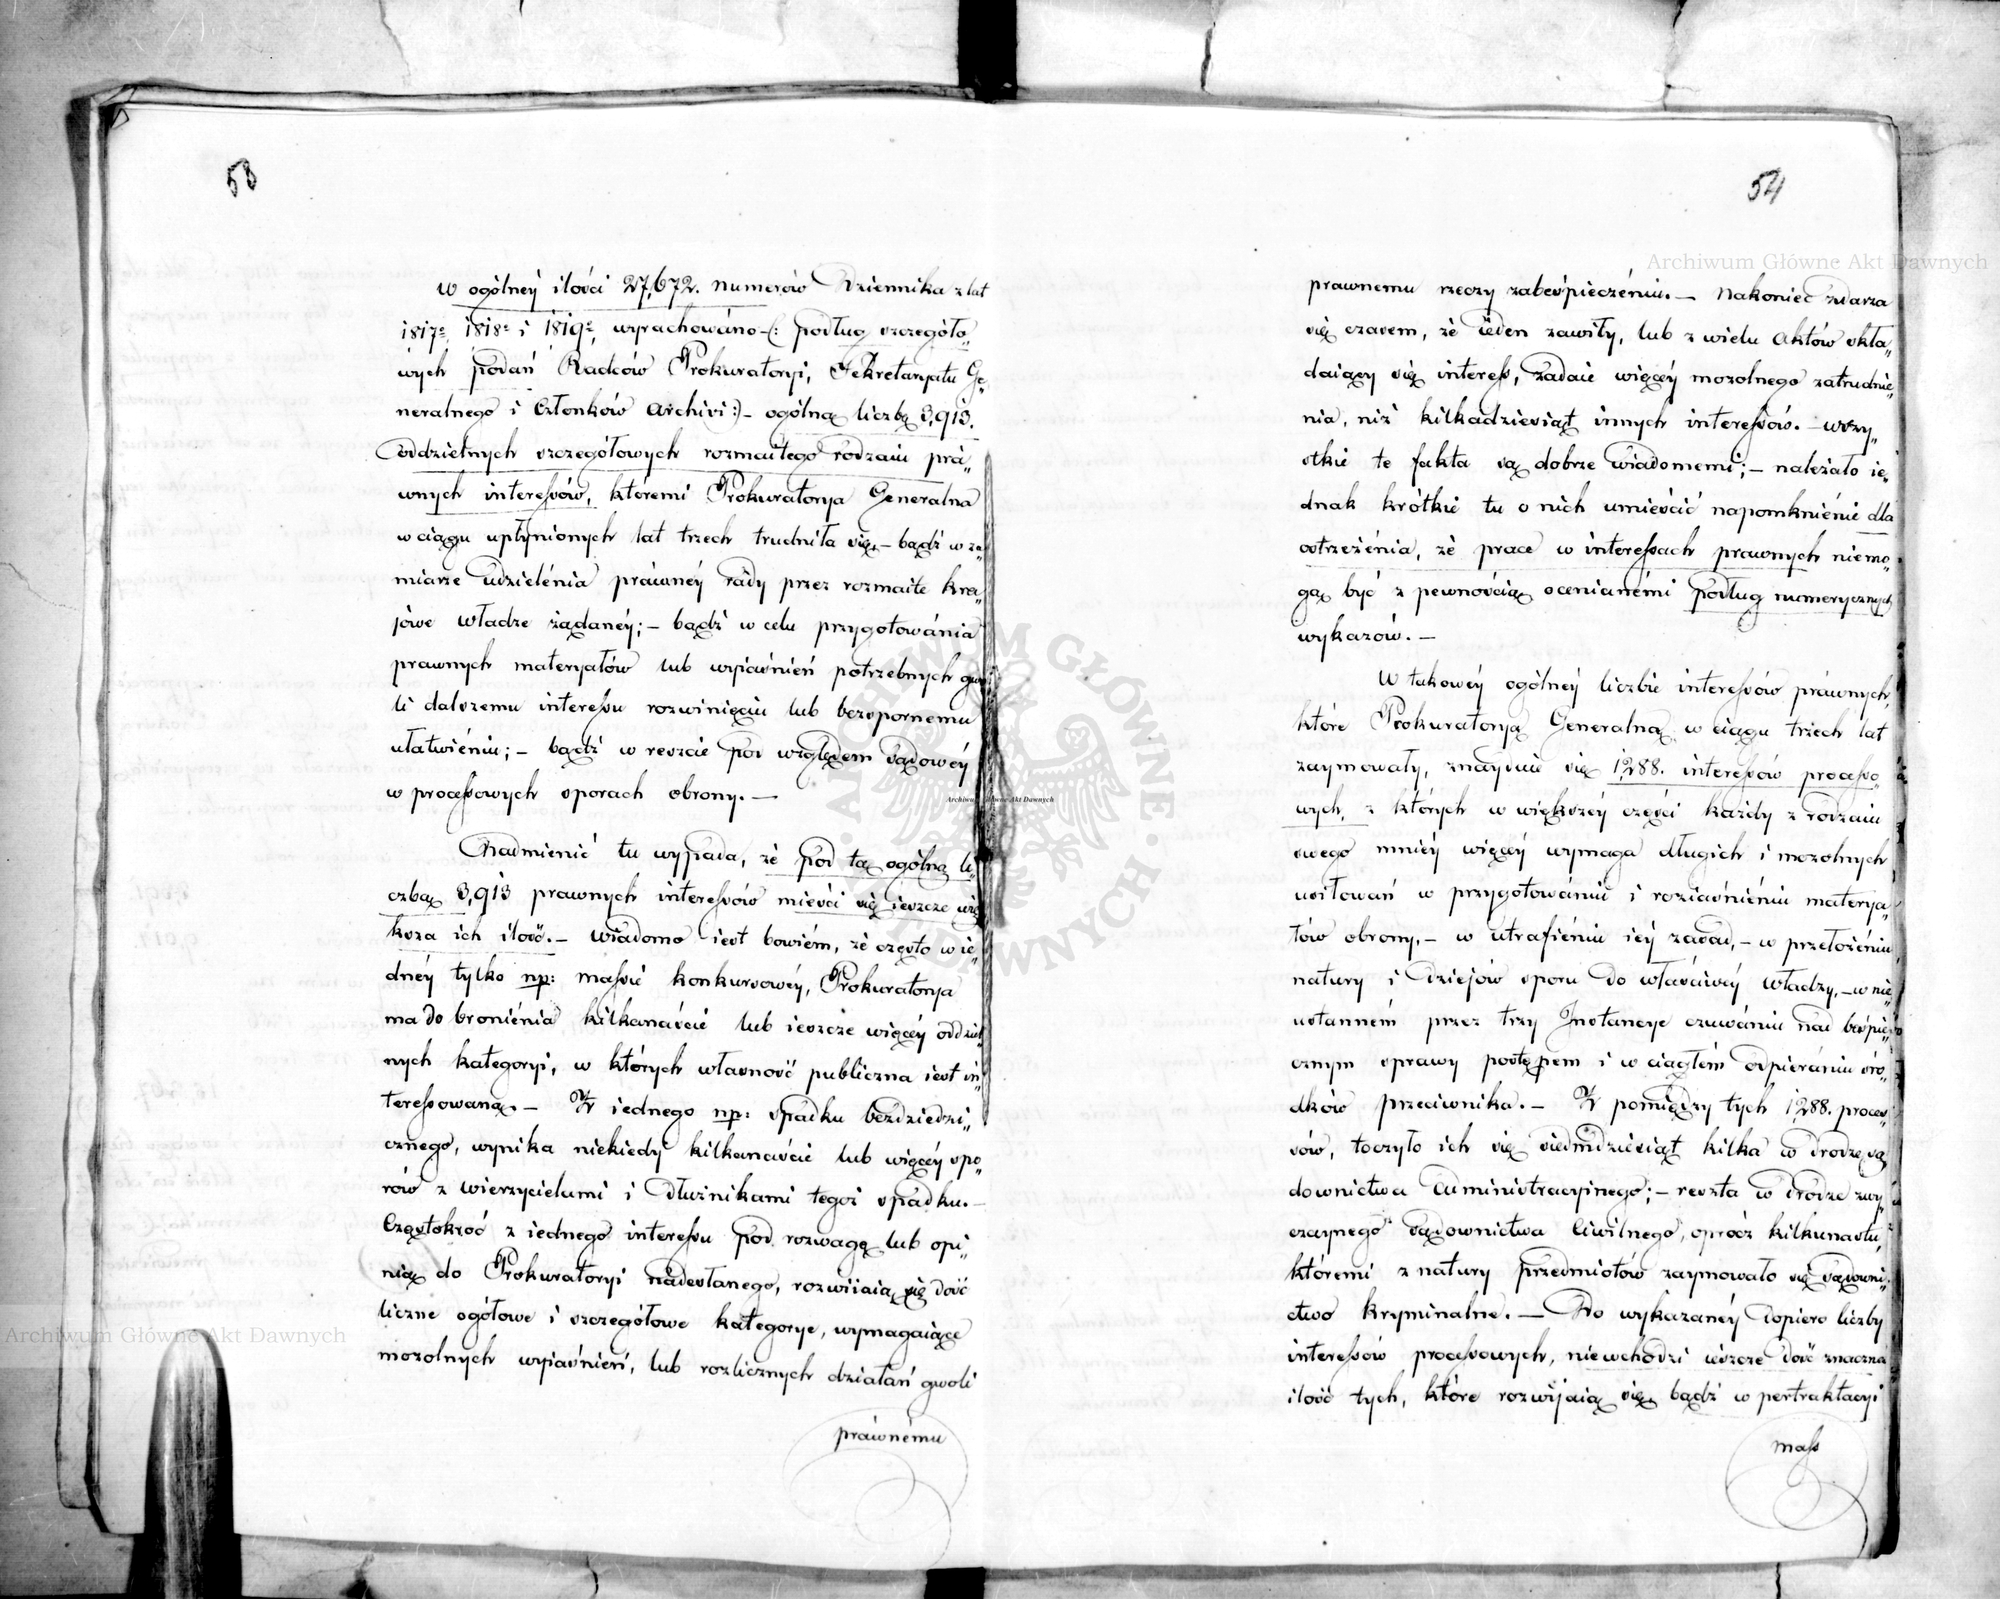 53
W ogólnéy ilości 27,672. numerów Dziennika z lat
1817º, 1818º i 1819º, wyrachowáno (: podług szczegóło„
wych podań Radców Prokuratoryi, Sekretaryatu Ge„
neralnego i Członków Archivi :) – ogólną liczbę 3,913.
Oddzielnych szczegółowych rozmaitego rodzaiu prá„
wnych interessów, któremi Prokuratorya Generalna
w ciągu upłynionych lat trzech trudniła się, – bądź w za„
miarze udzielénia práwnéy rády przez rozmaite kra„
jowe władze żądanéy; – bądź w celu przygotowánia
prawnych materyałów lub wyiaśnień potrzebnych gwo„
li dalszemu interessu rozwinięciu lub bezspornemu
ułatwiéniu; – bądź w reszcie pod względem sądowéy
w processowych sporach obrony. –
Nadmienić tu wypada, że pod tą ogólną li„
czbą 3,913 prawnych interessów mieści się ieszcze wię„
ksza ich ilość. – Wiadomo iest bowiém, że często w ie„
dnéy tylko np: massie konkursowéy, Prokuratorya
ma do bronienia kilkanaście lub ieszcze więcéy oddziel„
nych kategoryi, w których własność publiczna iest in„
teressowaną. – Z iednego np: spadku bezdziedzi„
cznego, wynika niekiedy kilkanaście lub więcéy spo„
rów z wierzycielami i dłużnikami tegoż spadku. –
Częstokroć z iednego interessu pod rozwagę lub opi„
nią do Prokuratoryi nadesłanego, rozwiiaią się dość
liczne ogółowe i szczegółowe kategorye, wymagaiące
mozolnych wyiaśnień, lub rozlicznych działań gwoli
práwnému
54
prawnemu rzeczy zabespieczéniu. – Nakoniec zdarza
się czasem, że ieden zawiły, lub z wielu Aktów skła„
daiący się interess, zadaie więcéy mozolnego zatrudnie„
nia, niż kilkadziesiąt innych interessów. – Wszy„
stkie te fakta są dobrze wiadomemi; – należało ie„
dnak krótkie tu o nich umieścić napomkniénie dla
ostrzeżénia, że prace w interessach prawnych niemo„
gą być z pewnością ocenianémi podług numerycznych
wykazów. –
W takowéy ogólnéy liczbie interessów práwnych,
które Prokuratoryą Generalną w ciągu trzech lat
zaymowały, znayduie się 1,288. interessów processo„
wych, z których w większéy części każdy z rodzaiu
swego mniéy więcéy wymaga długich i mozolnych
usiłowań w przygotowániu i roziaśniéniu materya„
łów obrony, – w utrafiéniu iéy zasad, – w przełożéniu
natury i dziejów sporu do właściwéy władzy, – w nie„
ustanném przez trzy Instancye czuwániu nad bespie„
cznym sprawy postępem i w ciągłém odpierániu śro„
dków przeciwnika. – Z pomiędzy tych 1,288. proces„
sów, toczyło ich się siedmdziesiąt kilka w drodze są„
downictwa Administracyinego; – reszta w drodze zwy„
czaynego sądownictwa Ciwilnego, oprócz kilkunastu,
któremi z natury przedmiotów zaymowało się sądowni„
ctwo kryminalne. – Do wykazanéy dopiero liczby
interessów processowych, niewchodzi ieszcze dość znaczna
ilość tych, które rozwijaią się bądź w pertraktacyi
mass
Archiwum Główne Akt Dawnych
Archiwum Główne Akt Dawnych
Archiwum Główne Akt Dawnych